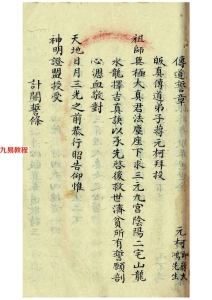 傳道誓章
皈真傳道弟子蔣元柯拜投
祖師無極大真君法座座下求三元九宮陰陽二宅山龍
水龍擇吉真訣以承先啓後救世濟貧所有誓願剖
心瀝血敬對
天地日月三光之前恭行昭告仰惟
神明證盟授受
計開誓條
元柯即蔣大鴻先生
九易教程